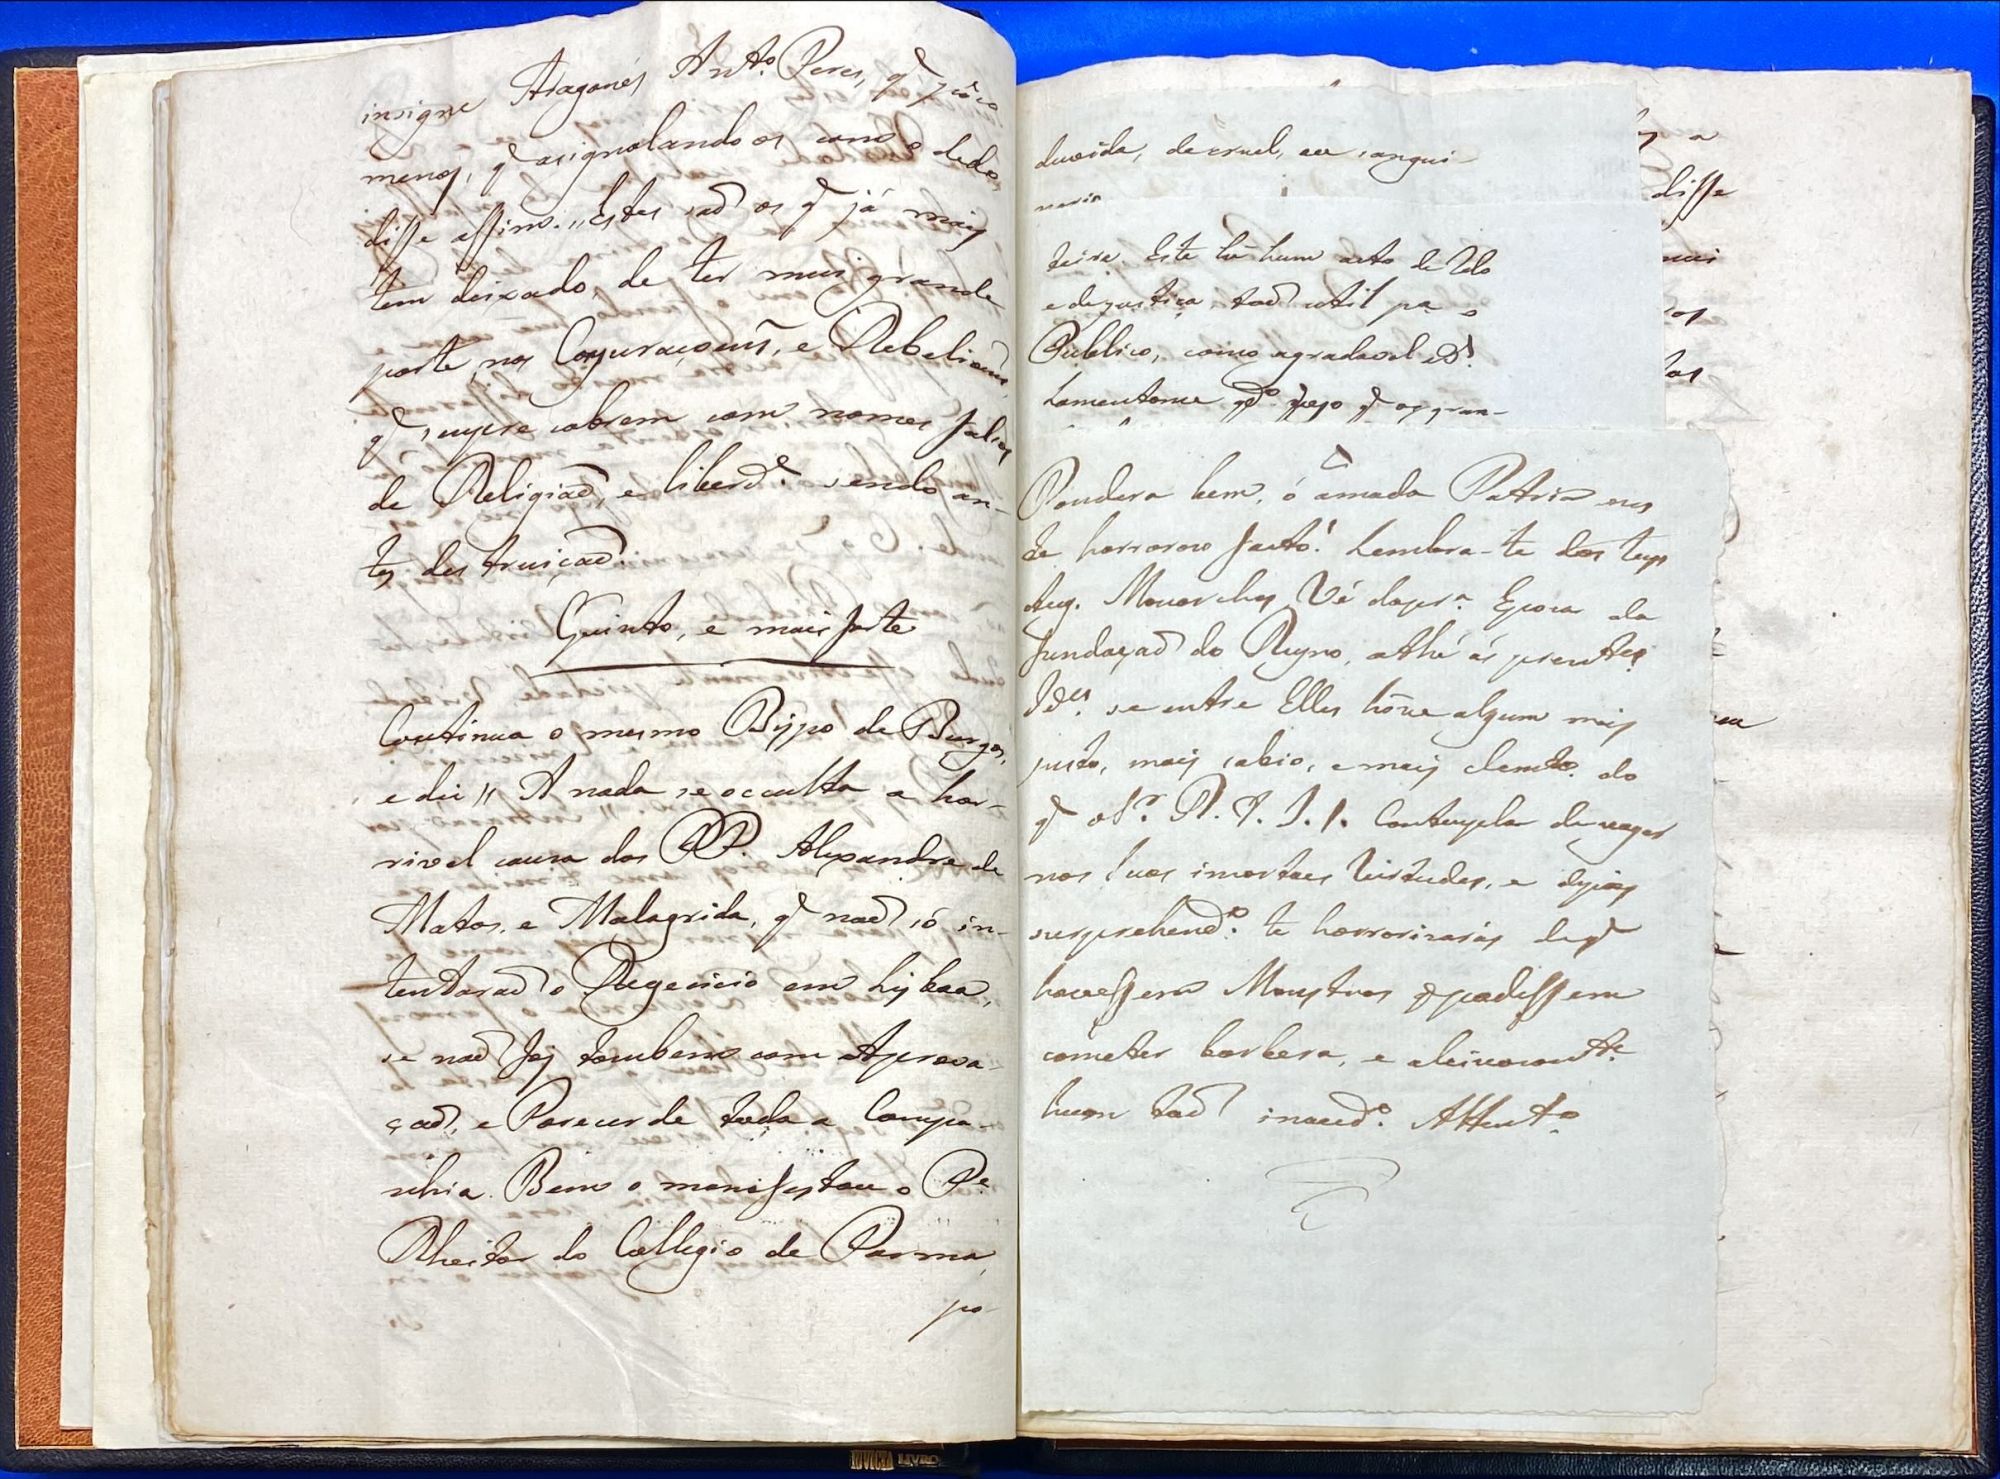 insigne Aragonés Anto. Peres, q̃
menos, q̃ asignalando os com o dedo,
disse assim. „ Estes saõ os q̃ já mais
tem deixado, de ter mui grande
parte nas Conjuraçoens, e Rebelioens,
q̃ sempre cobrem com nomes falsos
de Religiaõ, e liberde. sendo an-
tes destruiçaõ.
Quinto, e mais forte
Continua o mesmo Bispo de Burgos,
e diz „ A nada se occulta a hor-
rivel causa dos PP. Alexandre de
Matos, e Malagrida, q̃ naõ só in-
tentaraõ o Regecicio em Lisboa,
se naõ foj tambem com Aprova-
çaõ, e Parecer de toda a Compa-
nhia. Bem o manifestou o Pe.
Rheitor do Collegio de Parma,
po-
duvida, de cruel, ou sangui-
nario
teira. Este hé hum acto de Zelo
e de justiça taõ util pa. o
Publico, como agradavel a Ds.
Lamentome qdo. vejo q̃ os gran-
Pondera bem, ó amada Patria es
te horroroso facto! Lembra-te dos teus
Aug. Monarchas, Vé da pra. Epoca da
fundaçaõ do Reyno, athé ás prentes.
Ides. se entre Elles houve algum mais
justo, mais sabio, e mais clemte. do
q̃ o Sr. R. D. J. I. Contempla de vagar
nas suas imortaes Virtudes, e depois
surprehendo. te horrorizarás de q̃
houvessem Monstros q̃ podessem
cometer barbera, e aleivosamte.
hum taõ inaudo. Attento.
a
disse
mui
os
las